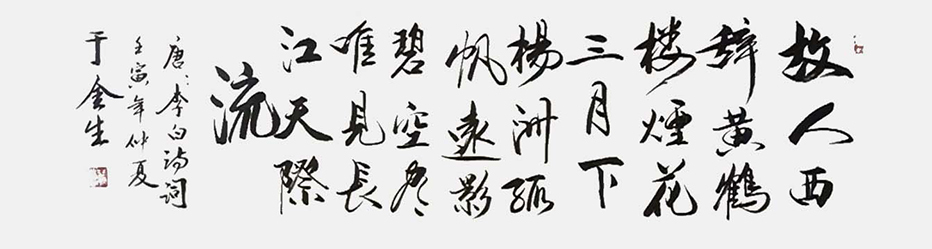 故人西
辞黄鶴
楼煙花
三月下
楊洲孤
帆遠影
碧空尽
唯見長
江天際
流
唐、李白诗词
壬寅年仲夏
于金生